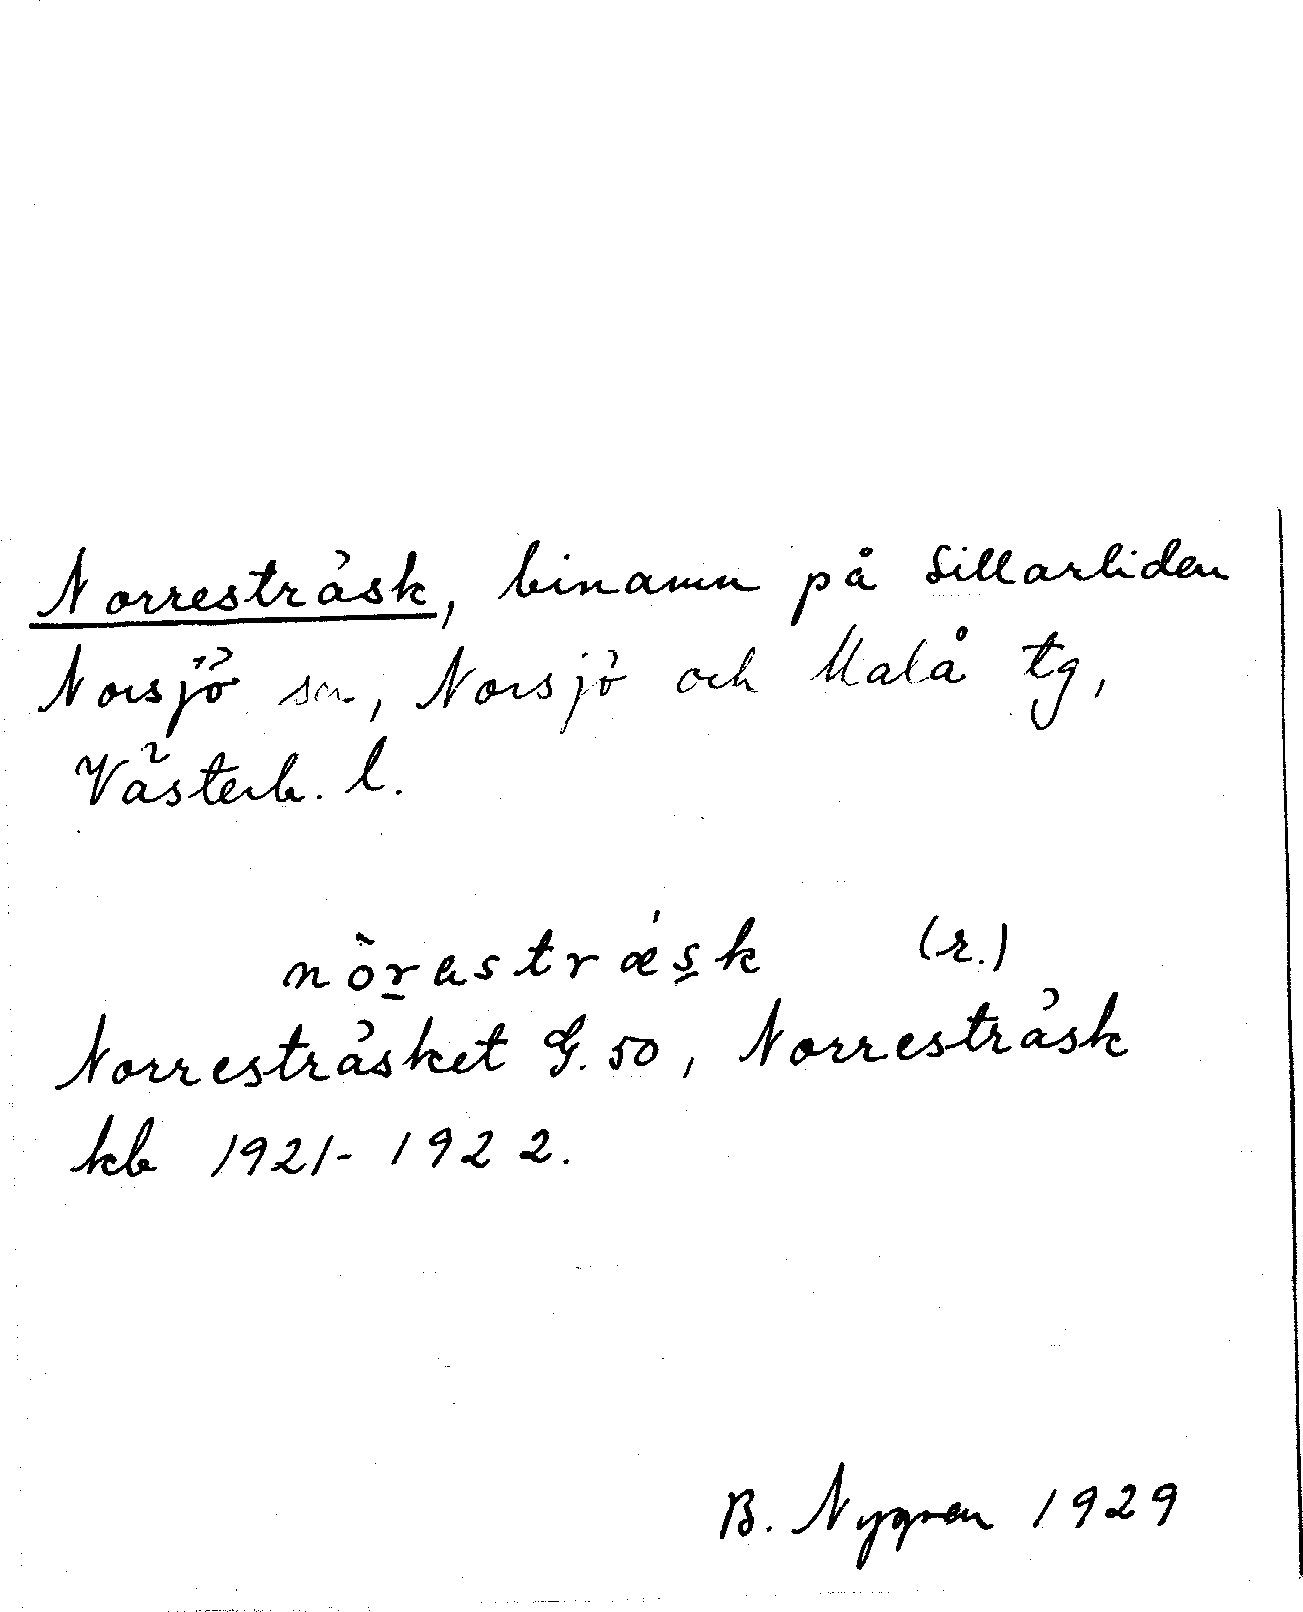 Norresträsk, binamn på Sillarliden
Norsjö sn, Norsjö och Malå tg,
Västerb. l.
nò̱rastrǽs̱k (r.)
Norresträsket G. 50, Norresträsk
kb 1921-1922.
B. Nygren 1929